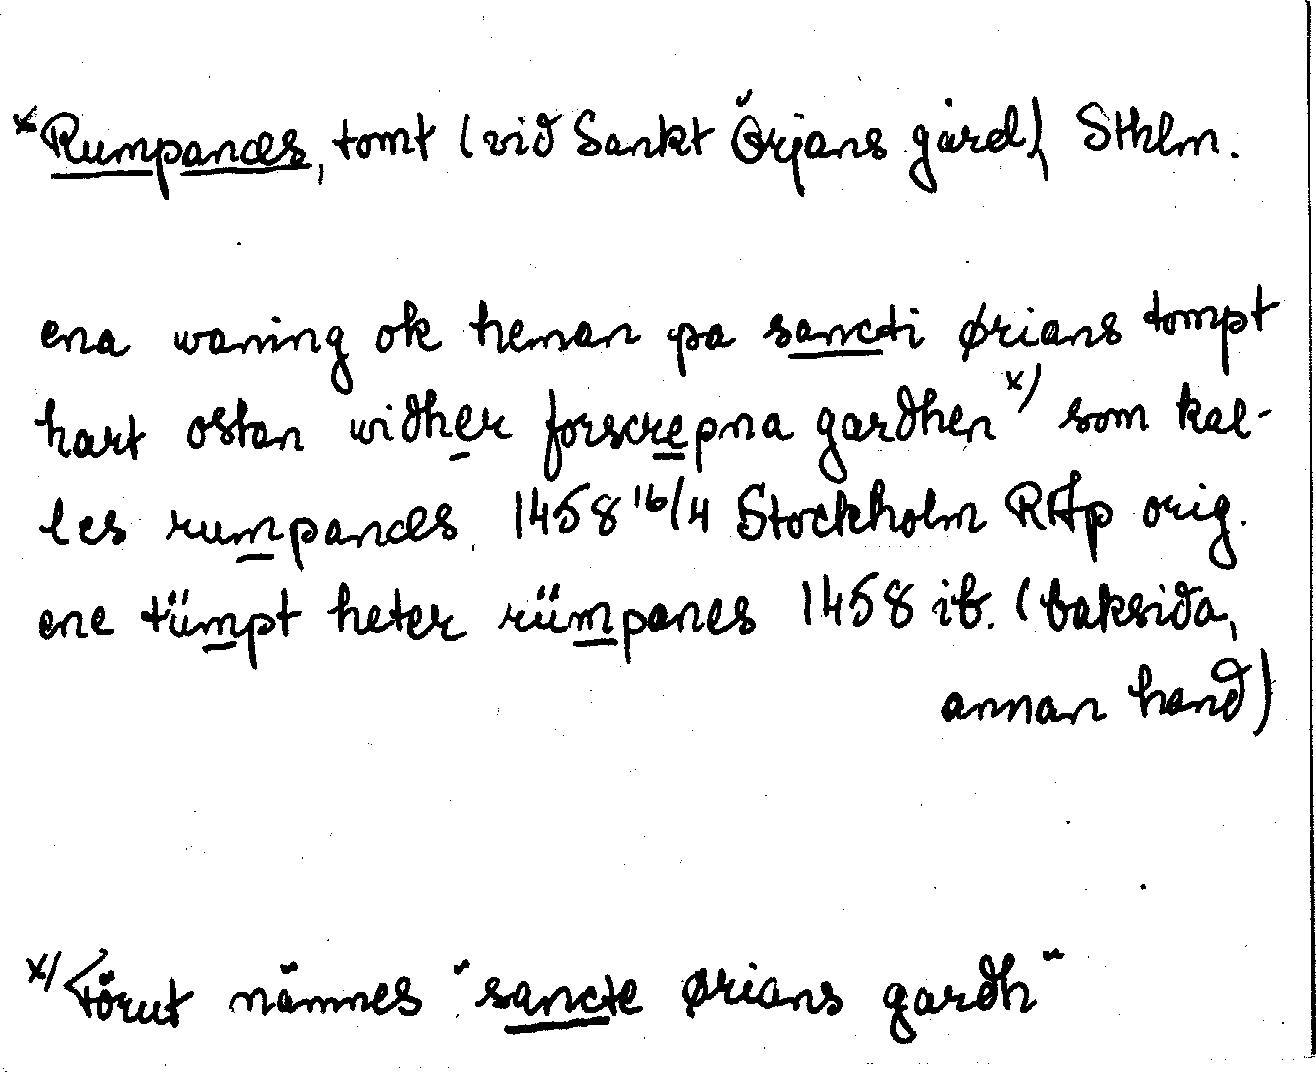 *Rumpanæs, tomt (vid Sankt Örjans gård), Sthlm.
ena waning ok heman pa sancti ørians tompt
hart østan widher forscrepna gardhen x) som kal-
les rumpanæs. 1458 16/4 Stockholm RAp orig.
ene tümpt heter rümpanes 1458 ib. (baksida,
annan hand)
x) Förut nämnes "sancte ørians gardh"